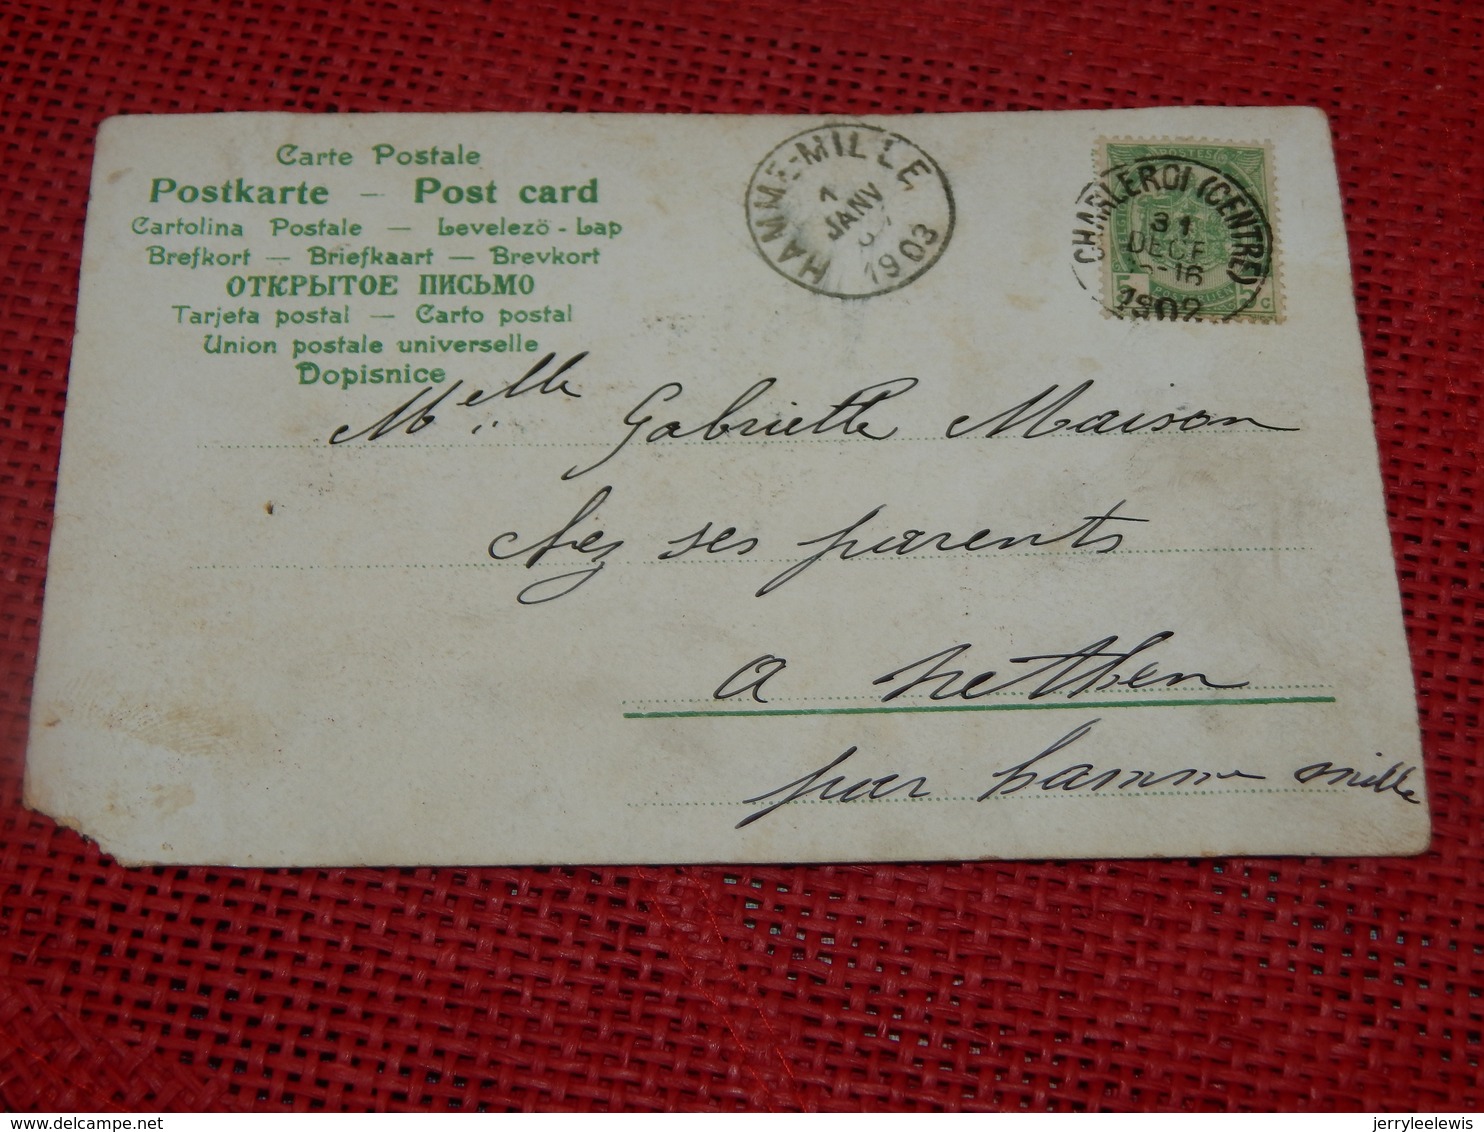 Carte Postale
Postkarte — Post card
Cartolina Postale — Levelezö - Lap
Brefkort — Briefkaart — Brevkort
ОТКРЫТОЕ ПИСЬМО
Tarjeta postal — Carto postal
Union postale universelle
Dopisnice
HAMME-MILLE
1
JANV
1903
POSTES
CHARLEROI (CENTRE)
31
DECE
-16
1902
5 c
Melle Gabrielle Maison
chez ses parents
a Nethen
par hamme mille
jerryleelewis